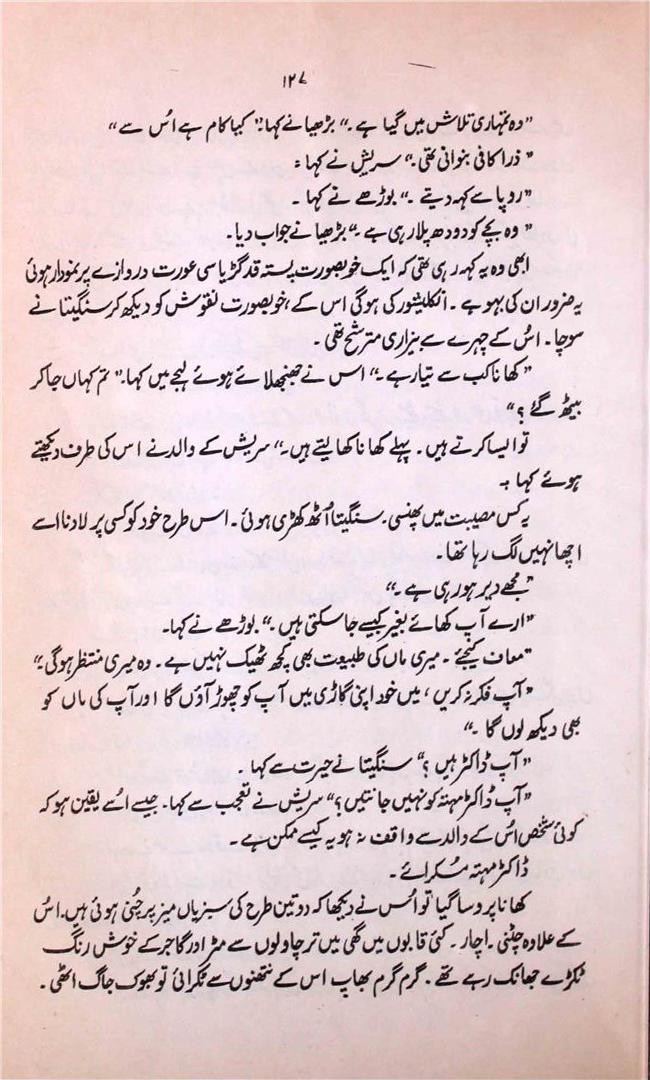 ۱۲۷
"وہ تمہاری تلاش میں گیا ہے۔" بڑھیا نے کہا۔" کیا کام ہے اُس سے"
"ذرا کافی بنوانی تھی۔" سریش نے کہا :
"روپا سے کہہ دیتے۔" بوڑھے نے کہا۔
"وہ بچے کو دودھ پلا رہی ہے۔" بڑھیا نے جواب دیا۔
ابھی وہ یہ کہہ رہی تھی کہ ایک خوبصورت پستہ قد گڑیا سی عورت دروازے پر نمودار ہوئی
یہ ضرور ان کی بہو ہے۔ انکلیشور کی ہوگی اس کے خوبصورت نقوش کو دیکھ کر سنگیتا نے
سوچا۔ اُس کے چہرے سے بیزاری مترشح تھی۔
"کھانا کب سے تیار ہے۔" اس نے جھنجھلائے ہوئے لہجے میں کہا۔" تم کہاں جا کر
بیٹھ گئے ؟"
تو ایسا کرتے ہیں۔ پہلے کھانا کھا لیتے ہیں۔" سریش کے والد نے اس کی طرف دیکھتے
ہوئے کہا ۔
یہ کس مصیبت میں پھنسی۔ سنگیتا اُٹھ کھڑی ہوئی۔ اس طرح خود کو کسی پر لادنا اسے
اچھا نہیں لگ رہا تھا۔
"مجھے دیر ہو رہی ہے۔"
"ارے آپ کھائے بغیر کیسے جا سکتی ہیں۔" بوڑھے نے کہا۔
"معاف کیجئے۔ میری ماں کی طبیعت بھی کچھ ٹھیک نہیں ہے۔ وہ میری منتظر ہوگی۔"
"آپ فکر نہ کریں، میں خود اپنی گاڑی میں آپ کو چھوڑ آؤں گا اور آپ کی ماں کو
بھی دیکھ لوں گا۔"
"آپ ڈاکٹر ہیں ؟" سنگیتا نے حیرت سے کہا۔
"آپ ڈاکٹر مہتہ کو نہیں جانتیں؟" سریش نے تعجب سے کہا۔ جیسے اُسے یقین ہو کہ
کوئی شخص اُس کے والد سے واقف نہ ہو یہ کیسے ممکن ہے۔
ڈاکٹر مہتہ مُسکرائے۔
کھانا پروسا گیا تو اُس نے دیکھا کہ دو تین طرح کی سبزیاں میز پر چُنی ہوئی ہیں۔ اُس
کے علاوہ چٹنی۔ اچار۔ کئی قابوں میں گھی میں تر چاولوں سے مٹر اور گاجر کے خوش رنگ
ٹکڑے جھانک رہے تھے۔ گرم گرم بھاپ اس کے نتھنوں سے ٹکرائی تو بھوک جاگ اٹھی۔